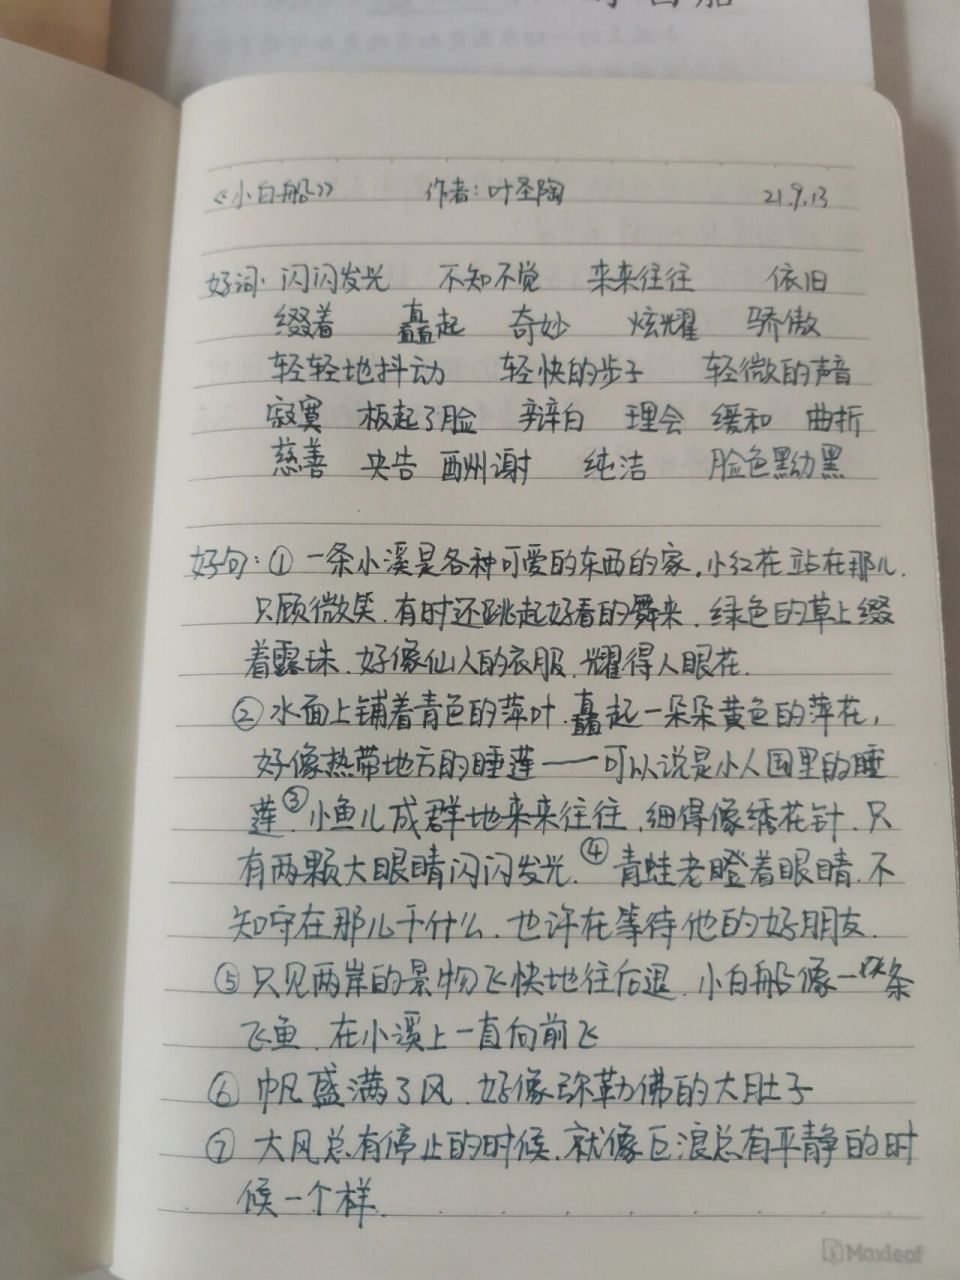 《小白船》 作者:叶圣陶 21.9.13
好词: 闪闪发光 不知不觉 来来往往 依旧
缀着 矗起 奇妙 炫耀 骄傲
轻轻地抖动 轻快的步子 轻微的声音
寂寞 板起了脸 辩白 理会 缓和 曲折
慈善 央告 酬谢 纯洁 脸色黝黑
好句:① 一条小溪是各种可爱的东西的家.小红花站在那儿.
只顾微笑.有时还跳起好看的舞来.绿色的草上缀
着露珠.好像仙人的衣服.耀得人眼花.
② 水面上铺着青色的萍叶.矗起一朵朵黄色的萍花,
好像热带地方的睡莲——可以说是小人国里的睡
莲.③小鱼儿成群地来来往往.细得像绣花针.只
有两颗大眼睛闪闪发光.④青蛙老瞪着眼睛.不
知守在那儿干什么.也许在等待他的好朋友.
⑤ 只见两岸的景物飞快地往后退.小白船像一条
飞鱼.在小溪上一直向前飞
⑥ 帆盛满了风.好像弥勒佛的大肚子
⑦ 大风总有停止的时候.就像巨浪总有平静的时
候一个样.
Maxleaf